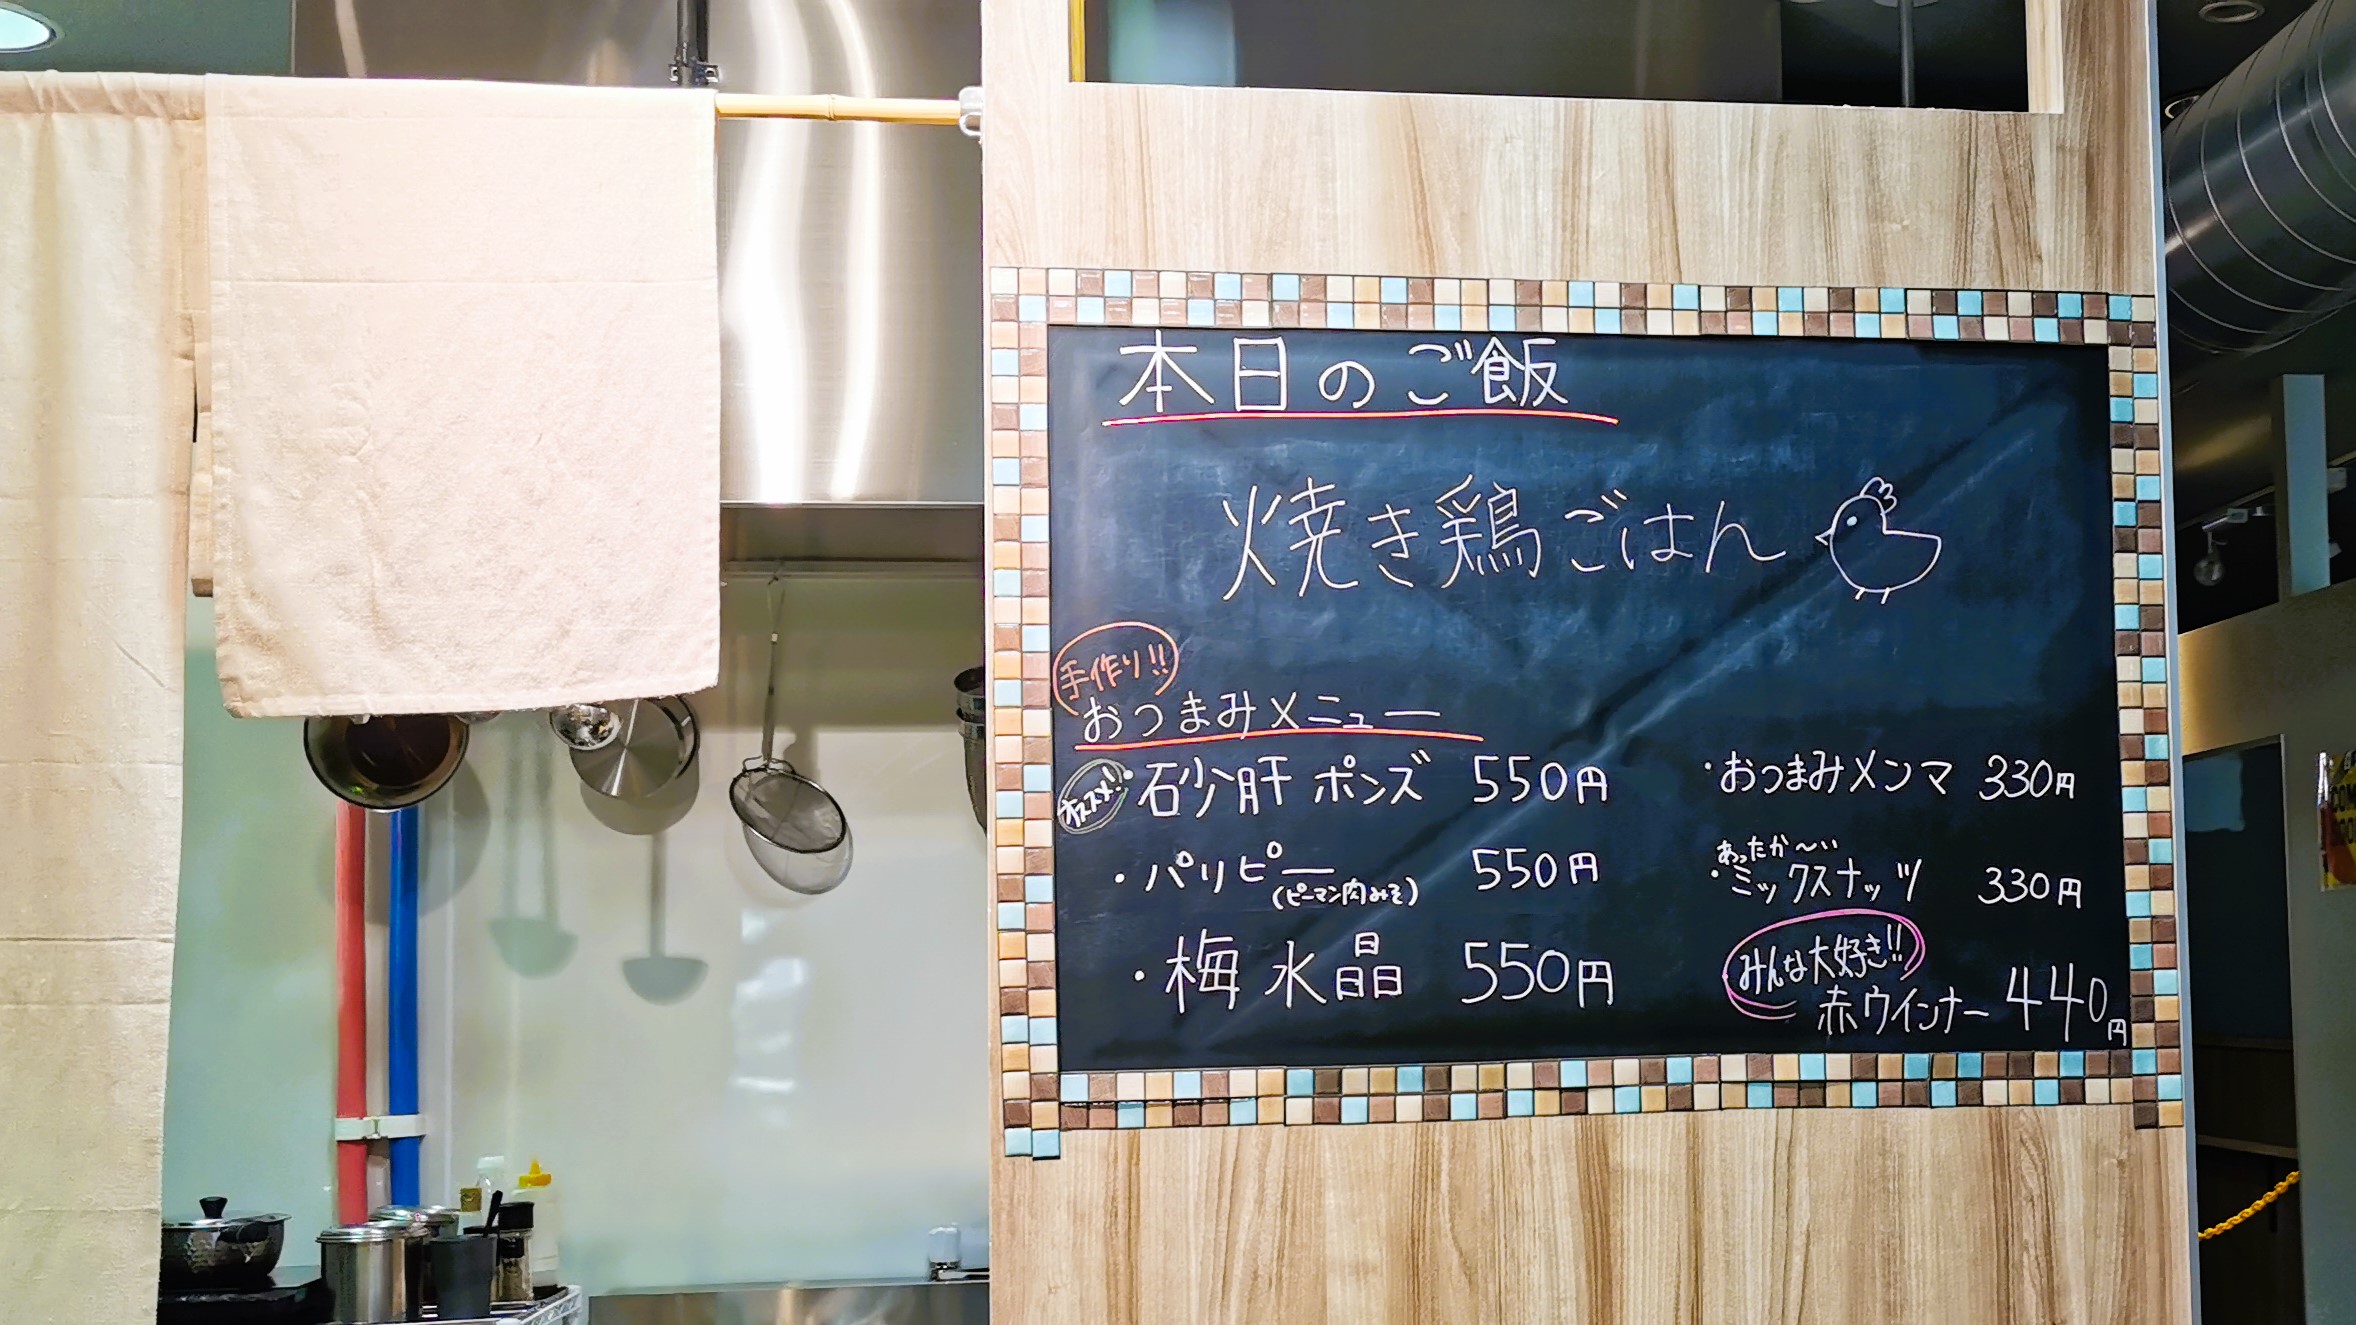 本日のご飯
焼き鶏ごはん
手作り!!
おつまみメニュー
オススメ!!
・砂肝ポンズ 550円
・パリピー 550円
(ピーマン肉みそ)
・梅水晶 550円
・おつまみメンマ 330円
あったか〜い
・ミックスナッツ 330円
みんな大好き!!
赤ウインナー 440円